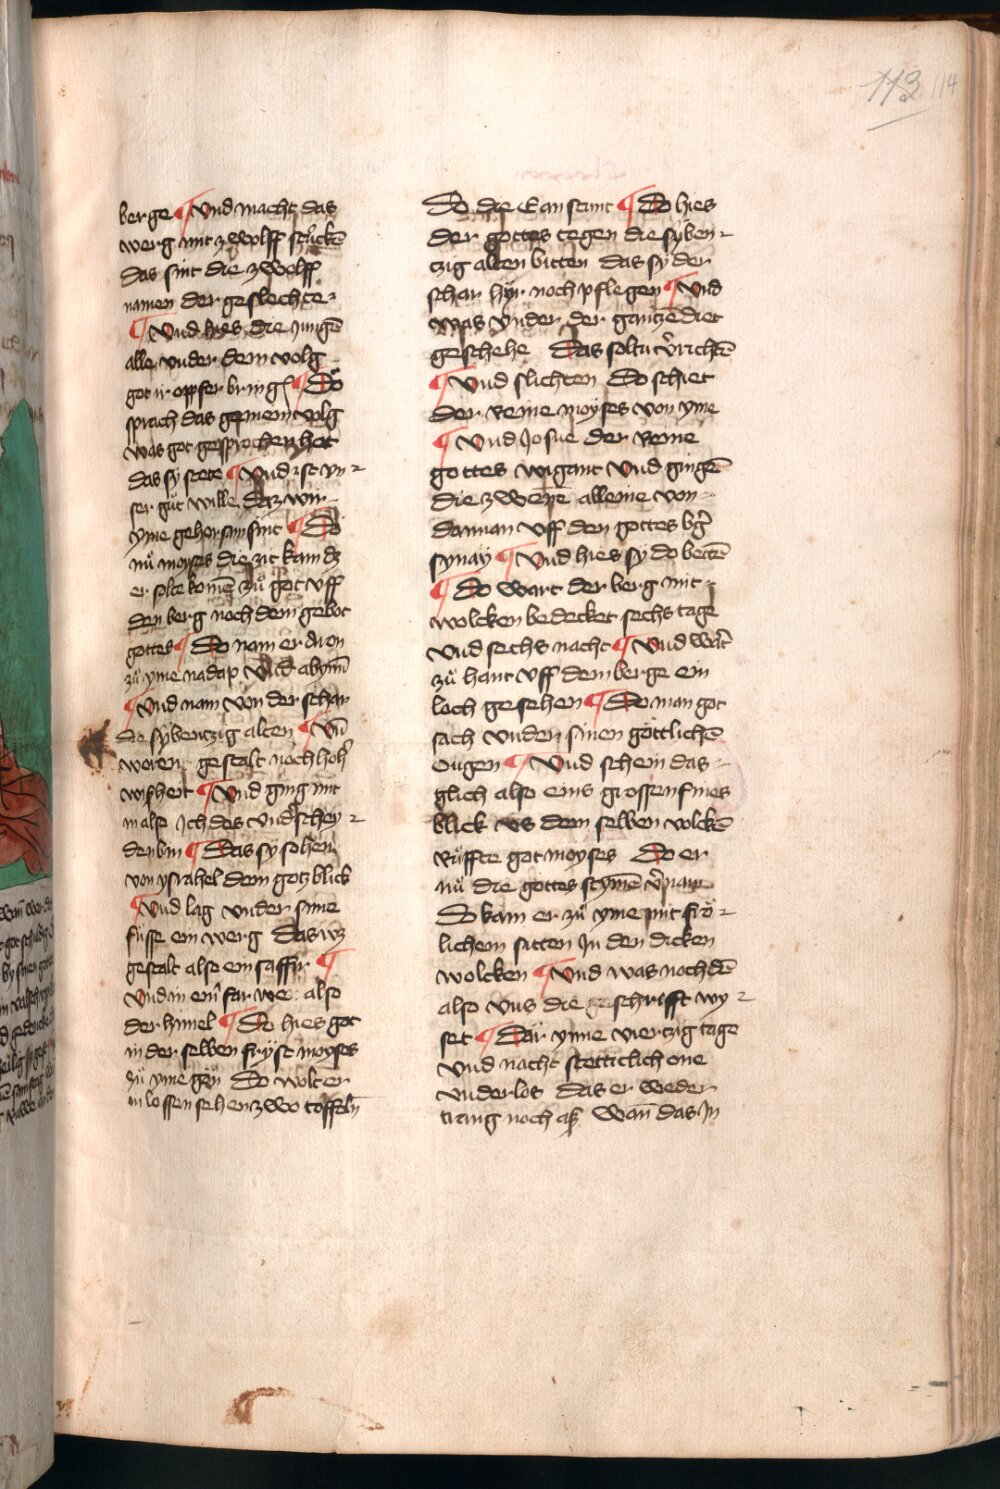 113 114
berge ¶ Vnd macht das
werg mit zwolff stücke͂
das sint die zwelff
namen der geslechte
¶ Vnd hies die Junge͂
alle vnder dem volg
got ir opfer bring ¶ Do
sprach das gemein volg
was got gesprochen het
das sy stete ¶ Vnd ist vn-
ser gůt wille daz wir
yme gehorsam sint ¶ Do
nů moyses die zit kam dz
er solte kome͂ zů got vff
den berg noch dem gebot
gottes ¶ Do nam er aron
zů yme nadap vnd abym͂
¶ Vnd nam von der schar
die sybentzig alten ¶ Vn͂
woren gestalt noch hoh͛
wisheit ¶ Vnd ging mit
in also Ich des vnd͛schey-
den bin ¶ Das sy sohen
von ysrahel dem gotz blick
¶ Vnd lag vnder sime
füsse ein werg Das wz
gestalt alse ein saffir ¶
Vnd in ein͛ farwe also
der himel ¶ Do hies got
in der selben fryst moyses
zů yme gen Do wolt er
in lossen sehen zwo toffeln
Do die E an stunt ¶ Do hies
der gottes tegen die syben-
tzig alten bitten das sy der
schar hyr noch pflegen ¶ Vnd
was vnder der gantze͂ diet
geschehe Das soltu v͛richte͂
¶ Vnd slichten Do schiet
der reine moyses von yme
¶ Vnd Josue der reine
gottes wigant Vnd ginge͂
die zwene͂ alleine von
dannan vff den gottes b͛g
synay ¶ Vnd hies sy do bette͂
¶ Do wart der berg mit
wolcken bedecket sechs tage
vnd sechs nacht ¶ Vnd wart
zů hant vff dem berge ein
loch gesehen ¶ Do man got
sach vnder sinen göttliche͂
ougen ¶ Vnd schein das
glich also eins grossen fures
blick vs dem selben wolcke͂
Rüffte got moyses Do er
nů die gottes styme͂ v͛nam
Do kam er zů yme mit frö-
lichem sitten In den dicken
wolcken ¶ Vnd was noch de͂
also vns die geschrifft wy-
set ¶ Dar ynne viertzig tage
vnd nacht stetticlich one
vnderlos das er weder
trang noch aß wan͂ das In